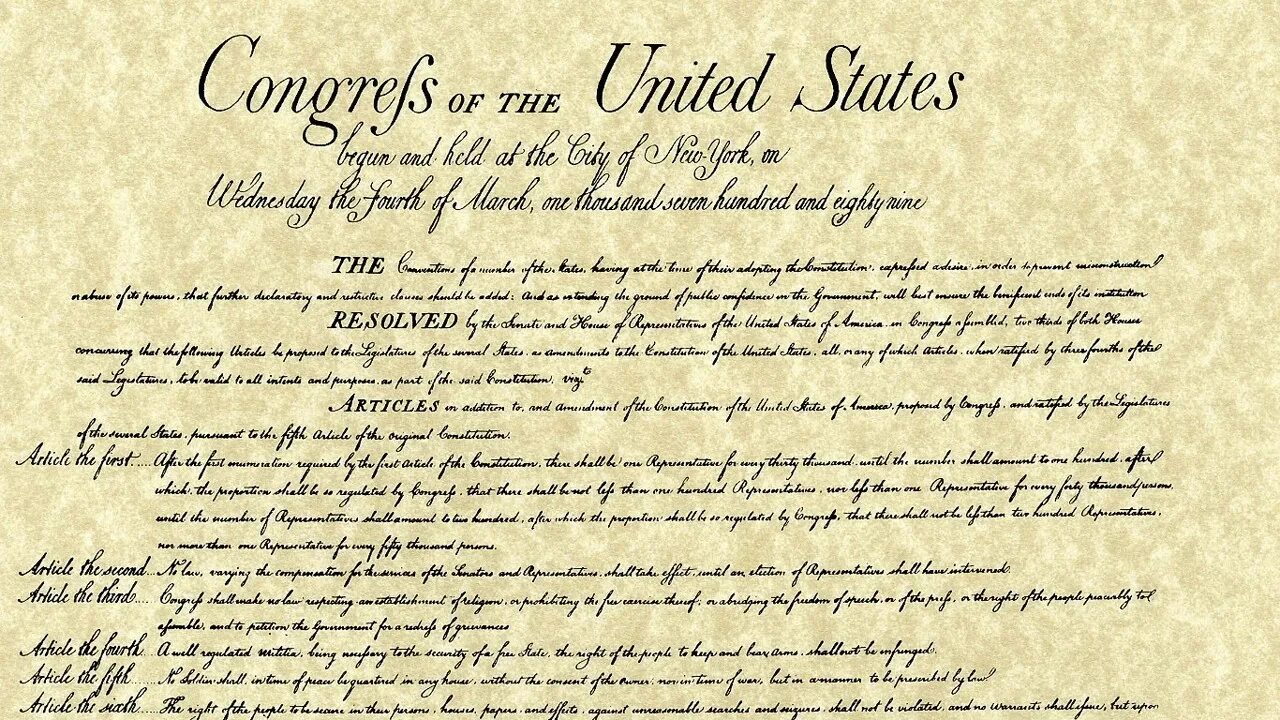 Congreſs OF THE United States
begun and held at the City of New-York, on
Wednesday the Fourth of March, one thousand seven hundred and eighty nine
THE Conventions of a number of the States, having at the time of their adopting the Constitution, expreſsed a desire, in order to prevent misconstruction
or abuse of its powers, that further declaratory and restrictive clauses should be added: And as extending the ground of public confidence in the Government, will best ensure the beneficent ends of its institution
RESOLVED by the Senate and House of Representatives of the United States of America, in Congreſs aſsembled, two thirds of both Houses
concurring that the following Articles be proposed to the Legislatures of the several States, as amendments to the Constitution of the United States, all, or any of which Articles, when ratified by three fourths of the
said Legislatures, to be valid to all intents and purposes, as part of the said Constitution, vizt
ARTICLES in addition to, and amendment of the Constitution of the United States of America, proposed by Congreſs, and ratified by the Legislatures
of the several States, pursuant to the fifth Article of the original Constitution.
Article the first..... After the first enumeration required by the first Article of the Constitution, there shall be one Representative for every thirty thousand, until the number shall amount to one hundred, after
which, the proportion shall be so regulated by Congreſs, that there shall be not leſs than one hundred Representatives, nor leſs than one Representative for every forty thousand persons,
until the number of Representatives shall amount to two hundred, after which the proportion shall be so regulated by Congreſs, that there shall not be leſs than two hundred Representatives,
nor more than one Representative for every fifty thousand persons.
Article the second... No law, varying the compensation for the services of the Senators and Representatives, shall take effect, until an election of Representatives shall have intervened.
Article the third.... Congreſs shall make no law respecting an establishment of religion, or prohibiting the free exercise thereof; or abridging the freedom of speech, or of the preſs, or the right of the people peaceably to
aſsemble, and to petition the Government for a redreſs of grievances
Article the fourth.. A well regulated militia, being neceſsary to the security of a free State, the right of the people to keep and bear Arms, shall not be infringed.
Article the fifth..... No Soldier shall, in time of peace be quartered in any house, without the consent of the owner, nor in time of war, but in a manner to be prescribed by law
Article the sixth.... The right of the people to be secure in their persons, houses, papers, and effects, against unreasonable searches and seizures, shall not be violated, and no Warrants shall iſsue, but upon